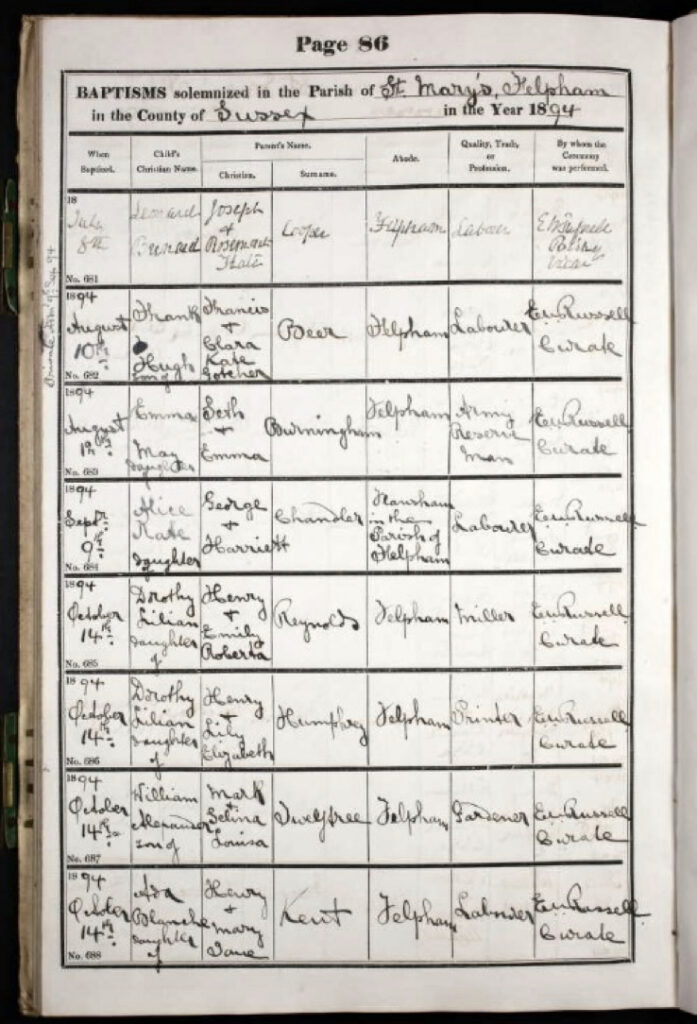 Page 86
BAPTISMS solemnized in the Parish of St. Mary's, Felpham
in the County of Sussex in the Year 1894
When Baptized.
Child's Christian Name.
Parent's Name.
Christian.
Surname.
Abode.
Quality, Trade, or Profession.
By whom the Ceremony was performed.
18
July
8th
No. 681
Leonard
Joseph
+
Cooper
Felpham
Labourer
Vicar
1894
August
10th
No. 682
Frank
Hugh
son of
Francis
+
Clara
Kate
Gotcher
Beer
Felpham
Labourer
E.W. Russell
Curate
1894
August
19th
No. 683
Emma
May
daughter
Seth
+
Emma
Burningham
Felpham
Army
Reserve
man
E.W. Russell
Curate
1894
Sept.
9th
No. 684
Alice
Kate
daughter
of
George
+
Harriett
Chandler
in the
Parish of
Felpham
Labourer
E.W. Russell
Curate
1894
October
14th
No. 685
Dorothy
Lilian
daughter
of
Henry
+
Emily
Roberta
Reynolds
Felpham
Miller
E.W. Russell
Curate
1894
October
14th
No. 686
Dorothy
Lilian
daughter
of
Henry
+
Lily
Elizabeth
Humphrey
Felpham
Printer
E.W. Russell
Curate
1894
October
14th
No. 687
William
Alexander
son of
Mark
+
Selina
Louisa
Twelftree
Felpham
Gardener
E.W. Russell
Curate
1894
October
14th
No. 688
Ada
Blanche
daughter
of
Henry
+
Mary
Jane
Kent
Felpham
Labourer
E.W. Russell
Curate